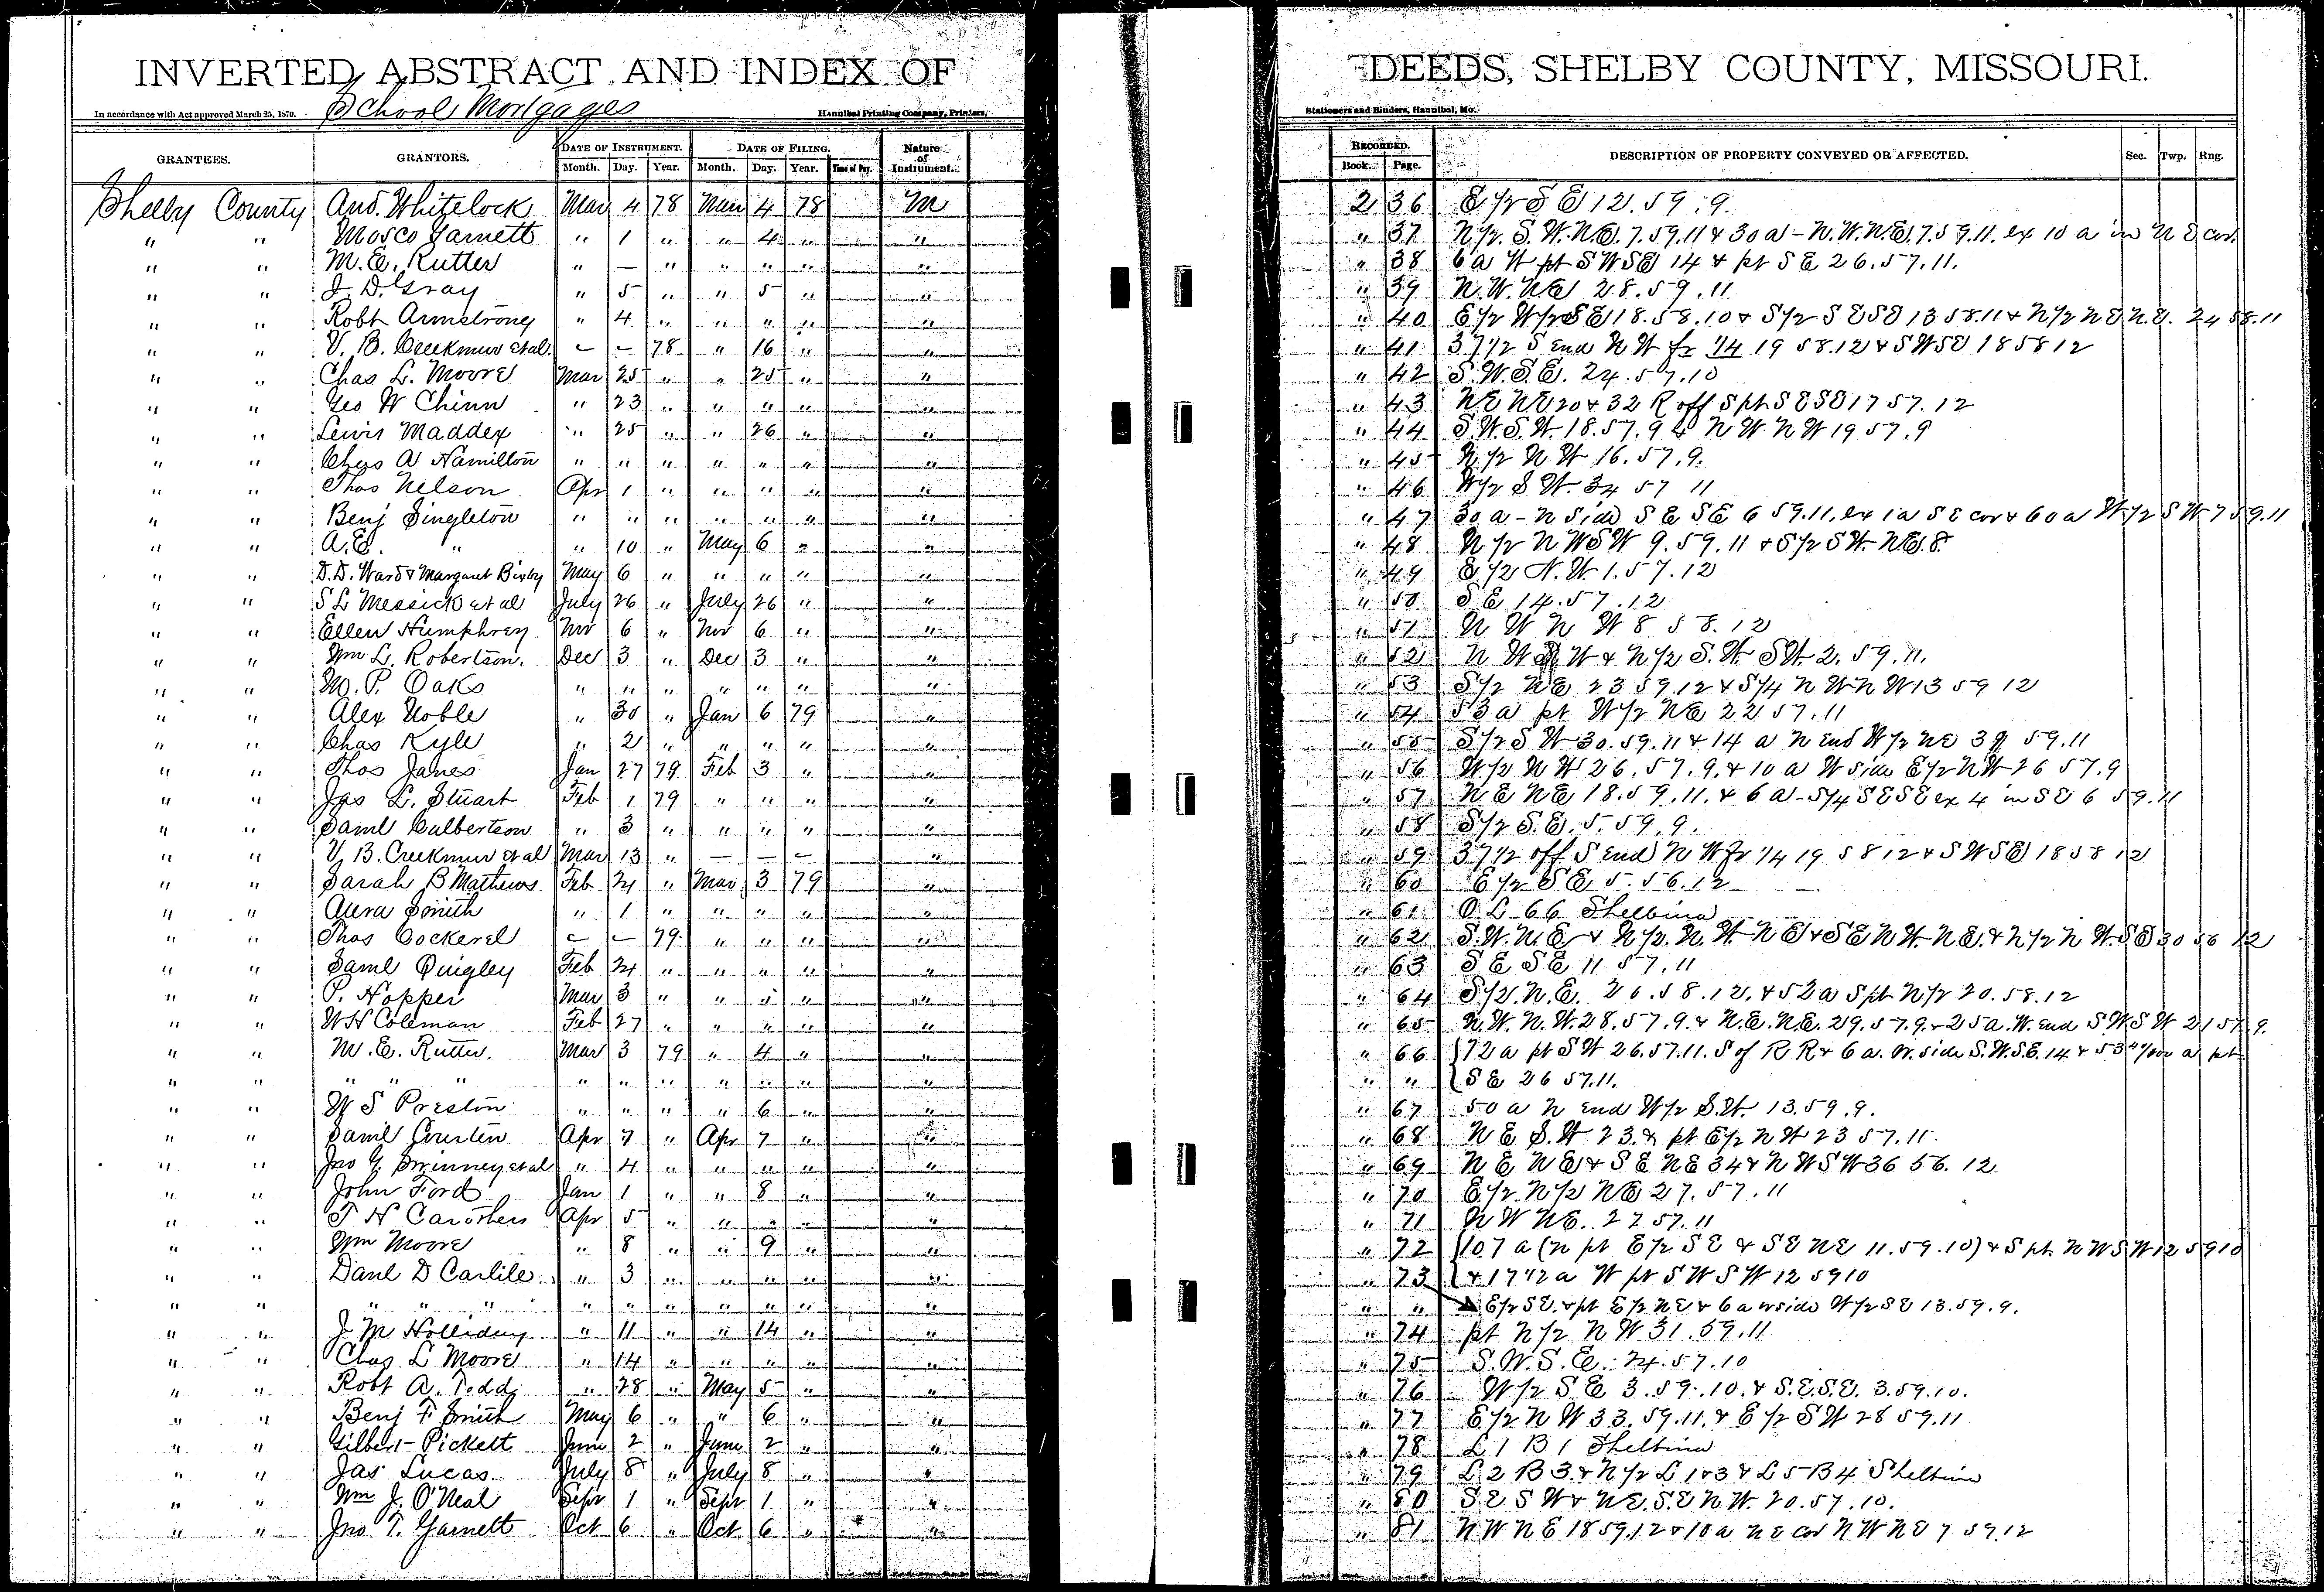 INVERTED ABSTRACT AND INDEX OF DEEDS, SHELBY COUNTY, MISSOURI.
School Mortgages
In accordance with Act approved March 25, 1870. Hannibal Printing Company, Printers, Stationers and Binders, Hannibal, Mo.
DATE OF INSTRUMENT. DATE OF FILING. Nature of Instrument. RECORDED.
GRANTEES. GRANTORS. Month. Day. Year. Month. Day. Year. Time of Day. Book. Page. DESCRIPTION OF PROPERTY CONVEYED OR AFFECTED. Sec. Twp. Rng.
Shelby County And. Whitelock Mar 4 78 Mar 4 78 M 2 36 E 1/2 S E 12. 59. 9.
" " Mosco Garnett " 1 " " 4 " " " 37 N 1/2. S. W. N. E. 7. 59. 11 & 30 a - N. W. N. E. 7. 59. 11. ex 10 a in N E cor.
" " M. E. Rutter " — " " " " " " 38 6 a W pt S W S E 14 & pt S E 26. 57. 11.
" " J. D. Gray " 5 " " 5 " " " 39 N. W. N E 28. 59. 11
" " Robt Armstrong " 4 " " " " " " 40 E 1/2 W 1/2 S E 18. 58. 10 & S 1/2 S E S E 13 58. 11 & N 1/2 N E N. E. 24 58. 11
" " V. B. Creekmur et al. – – 78 " 16 " " " 41 37 1/2 S end N W fr 1/4 19 58. 12 & S W S E 18 58 12
" " Chas L. Moore Mar 25 " " 25 " " " 42 S. W. S. E. 24. 57. 10
" " Geo W Chinn " 23 " " " " " " 43 N E N E 20 & 32 R off S pt S E S E 17 57. 12
" " Lewis Maddex " 25 " " 26 " " " 44 S. W. S. W. 18. 57. 9 & N W. N W 19 57. 9
" " Chas A Hamilton " " " " " " " " 45 N 1/2 N. W 16. 57. 9.
" " Thos Nelson Apr 1 " " " " " " 46 W 1/2 S W. 34 57 11
" " Benj Singleton " " " " " " " " 47 30 a - N side S E S E 6 59. 11, ex 1 a S E cor & 60 a W 1/2 S W 7 59. 11
" " A. E. " " 10 " May 6 " " " 48 N 1/2 N W S W 9. 59. 11 & S 1/2 S W. N. E. 8.
" " D. D. Ward & Margaret Bixby May 6 " " " " " " 49 E 1/2 N. W. 1. 57. 12
" " S L Messick et al July 26 " July 26 " " " 50 S E 14. 57. 12
" " Ellen Humphrey Nov 6 " Nov 6 " " " 51 N W N W 8 58. 12
" " Wm L. Robertson. Dec 3 " Dec 3 " " " 52 N W W & N 1/2 S. W. S W. 2. 59. 11.
" " M. P. Oaks " " " " " " " " 53 S 1/2 N E 23 59 12 & S 1/4 N W N W 13 59 12
" " Alex Noble " 30 " Jan 6 79 " " 54 53 a pt W 1/2 N E 22 57. 11
" " Chas Kyle " 2 " " " " " " 55 S 1/2 S W 30. 59. 11 & 14 a N end W 1/2 N E 59. 11
" " Thos James Jan 27 79 Feb 3 " " " 56 W 1/2 N W 26. 57. 9. & 10 a W side E 1/2 N W 26 57. 9
" " Jas L. Stuart Feb 1 79 " " " " " 57 N E N E 18. 59. 11. & 6 a - S 1/4 S E S E ex 4 in S E 6 59. 11
" " Saml Culbertson " 3 " " " " " " 58 S 1/2 S. E. 5. 59. 9.
" " V. B. Creekmur et al Mar 13 " — — – " " 59 37 1/2 off S end N W fr 1/4 19 58 12 & S W S E 18 58 12
" " Sarah B Mathews Feb 24 " Mar 3 79 " " 60 E 1/2 S E 5. 56. 12
" " Smith " 1 " " " " " " 61 O L 66 Shelbina
" " Thos Cockerel – – 79 " " " " " 62 S. W. N. E. & N 1/2. N. W. N E & S E N W. N E. & N 1/2 N W. S E 30 56 12
" " Saml Quigley Feb 24 " " " " " " 63 S E S E 11 57. 11
" " P. Hopper Mar 3 " " 5 " " " 64 S 1/2. N. E. 20. 58. 12. & 52 a S pt N 1/2 20. 58. 12
" " W H Coleman Feb 27 " " " " " " 65 N. W. N. W. 28. 57. 9. & N. E. N. E. 29. 57. 9. & 25 a. W. end S W S W 21 57. 9.
" " M. E. Rutter. Mar 3 79 " 4 " " " 66 72 a pt S W 26. 57. 11. S of R R & 6 a. W. side S. W. S. E. 14 & 53 a pt
" " " " " " " " " " " " " " S E 26 57. 11.
" " W S Preston " " " " 6 " " " 67 50 a N end W 1/2 S. W. 13. 59. 9.
" " Saml Apr 7 " Apr 7 " " " 68 N E S. W 23. & pt E 1/2 N W 23 57. 11.
" " Jno et al " 4 " " " " " " 69 N E N E & S E N E 34 & N W S W 36 56. 12
" " John Ford Jan 1 " " 8 " " " 70 E 1/2. N 1/2 N E 27. 57. 11
" " T H Carothers Apr 5 " " " " " " 71 N W N E. 27 57. 11
" " Wm Moore " 8 " " 9 " " " 72 107 a (N pt E 1/2 S E & S E N E 11. 59. 10) & S pt. N W S W 12 59 10
" " Danl D Carlile. " 3 " " " " " " 73 & 17 1/2 a W pt S W S W 12 59 10
" " " " " " " " " " " " " " E 1/2 S E. & pt E 1/2 N E & 6 a W side W 1/2 S E 13. 59. 9.
" " J M Holliday " 11 " " 14 " " " 74 pt N 1/2 N W 31. 59. 11
" " Chas L Moore " 14 " " " " " " 75 S. W. S. E. 24. 57. 10
" " Robt A. Todd " 28 " May 5 " " " 76 W 1/2 S E 3. 59. 10. & S. E. S. E. 3. 59. 10.
" " Benj F Smith May 6 " " 6 " " " 77 E 1/2 N W 33. 59. 11. & E 1/2 S W 28 59. 11
" " Gilbert Pickett June 2 " June 2 " " " 78 L 1 B 1 Shelbina
" " Jas Lucas. July 8 " July 8 " " " 79 L 2 B 3. & N 1/2 L 1 & 3 & L 5 B 4 Shelbina
" " Wm J. O'Neal Sept 1 " Sept 1 " " " 80 S E S W & N E. S. E N W. 20. 57. 10.
" " Jno T. Garnett Oct 6 " Oct 6 " " " 81 N W N E 18 59. 12 & 10 a N E cor N W N E 7 59. 12